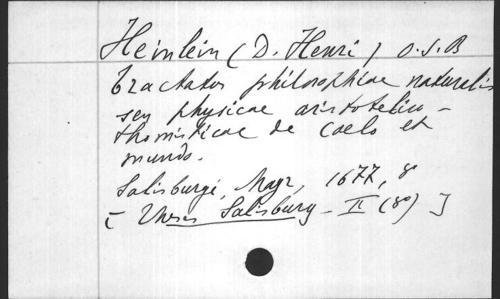 Heinlein (D. Henri) O.S.B
tractatus philosophiae naturalis
seu physicae aristotelico-
thomisticae de Caelo et
mundo.
Salisburgi, Mayr, 1677, 8
[Theses Salisburg - II (80)]